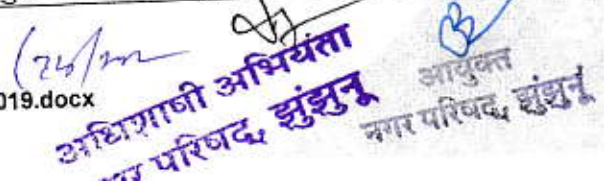 019.docx
अधिशाषी अभियंता
परिषद, झुंझुनू
आयुक्त
नगर परिषद, झुंझुनूं